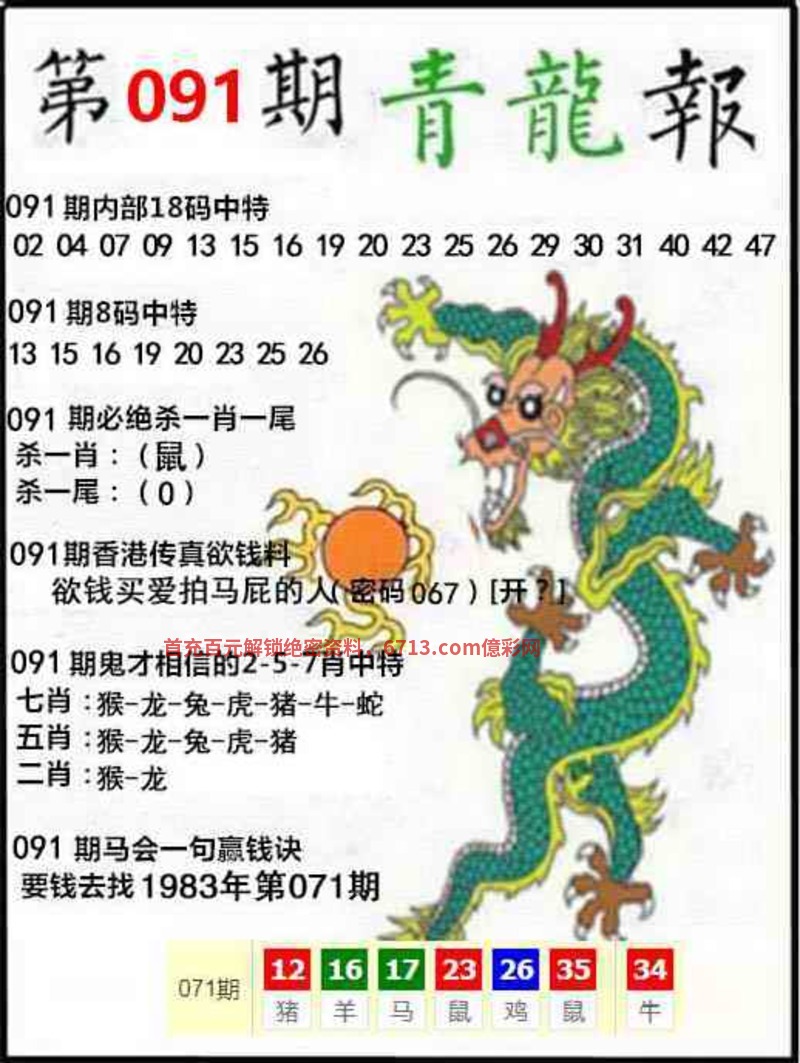 第091期青龍報
091期内部18码中特
02 04 07 09 13 15 16 19 20 23 25 26 29 30 31 40 42 47
091期8码中特
13 15 16 19 20 23 25 26
091 期必绝杀一肖一尾
杀一肖：（鼠）
杀一尾：（0）
091期香港传真欲钱料
欲钱买爱拍马屁的人( 密码067 ) [开？]
首充百元解锁绝密资料，6713.com億彩网
091期鬼才相信的2-5-7肖中特
七肖：猴-龙-兔-虎-猪-牛-蛇
五肖：猴-龙-兔-虎-猪
二肖：猴-龙
091 期马会一句赢钱诀
要钱去找1983年第071期
071期 12 16 17 23 26 35 34
猪 羊 马 鼠 鸡 鼠 牛